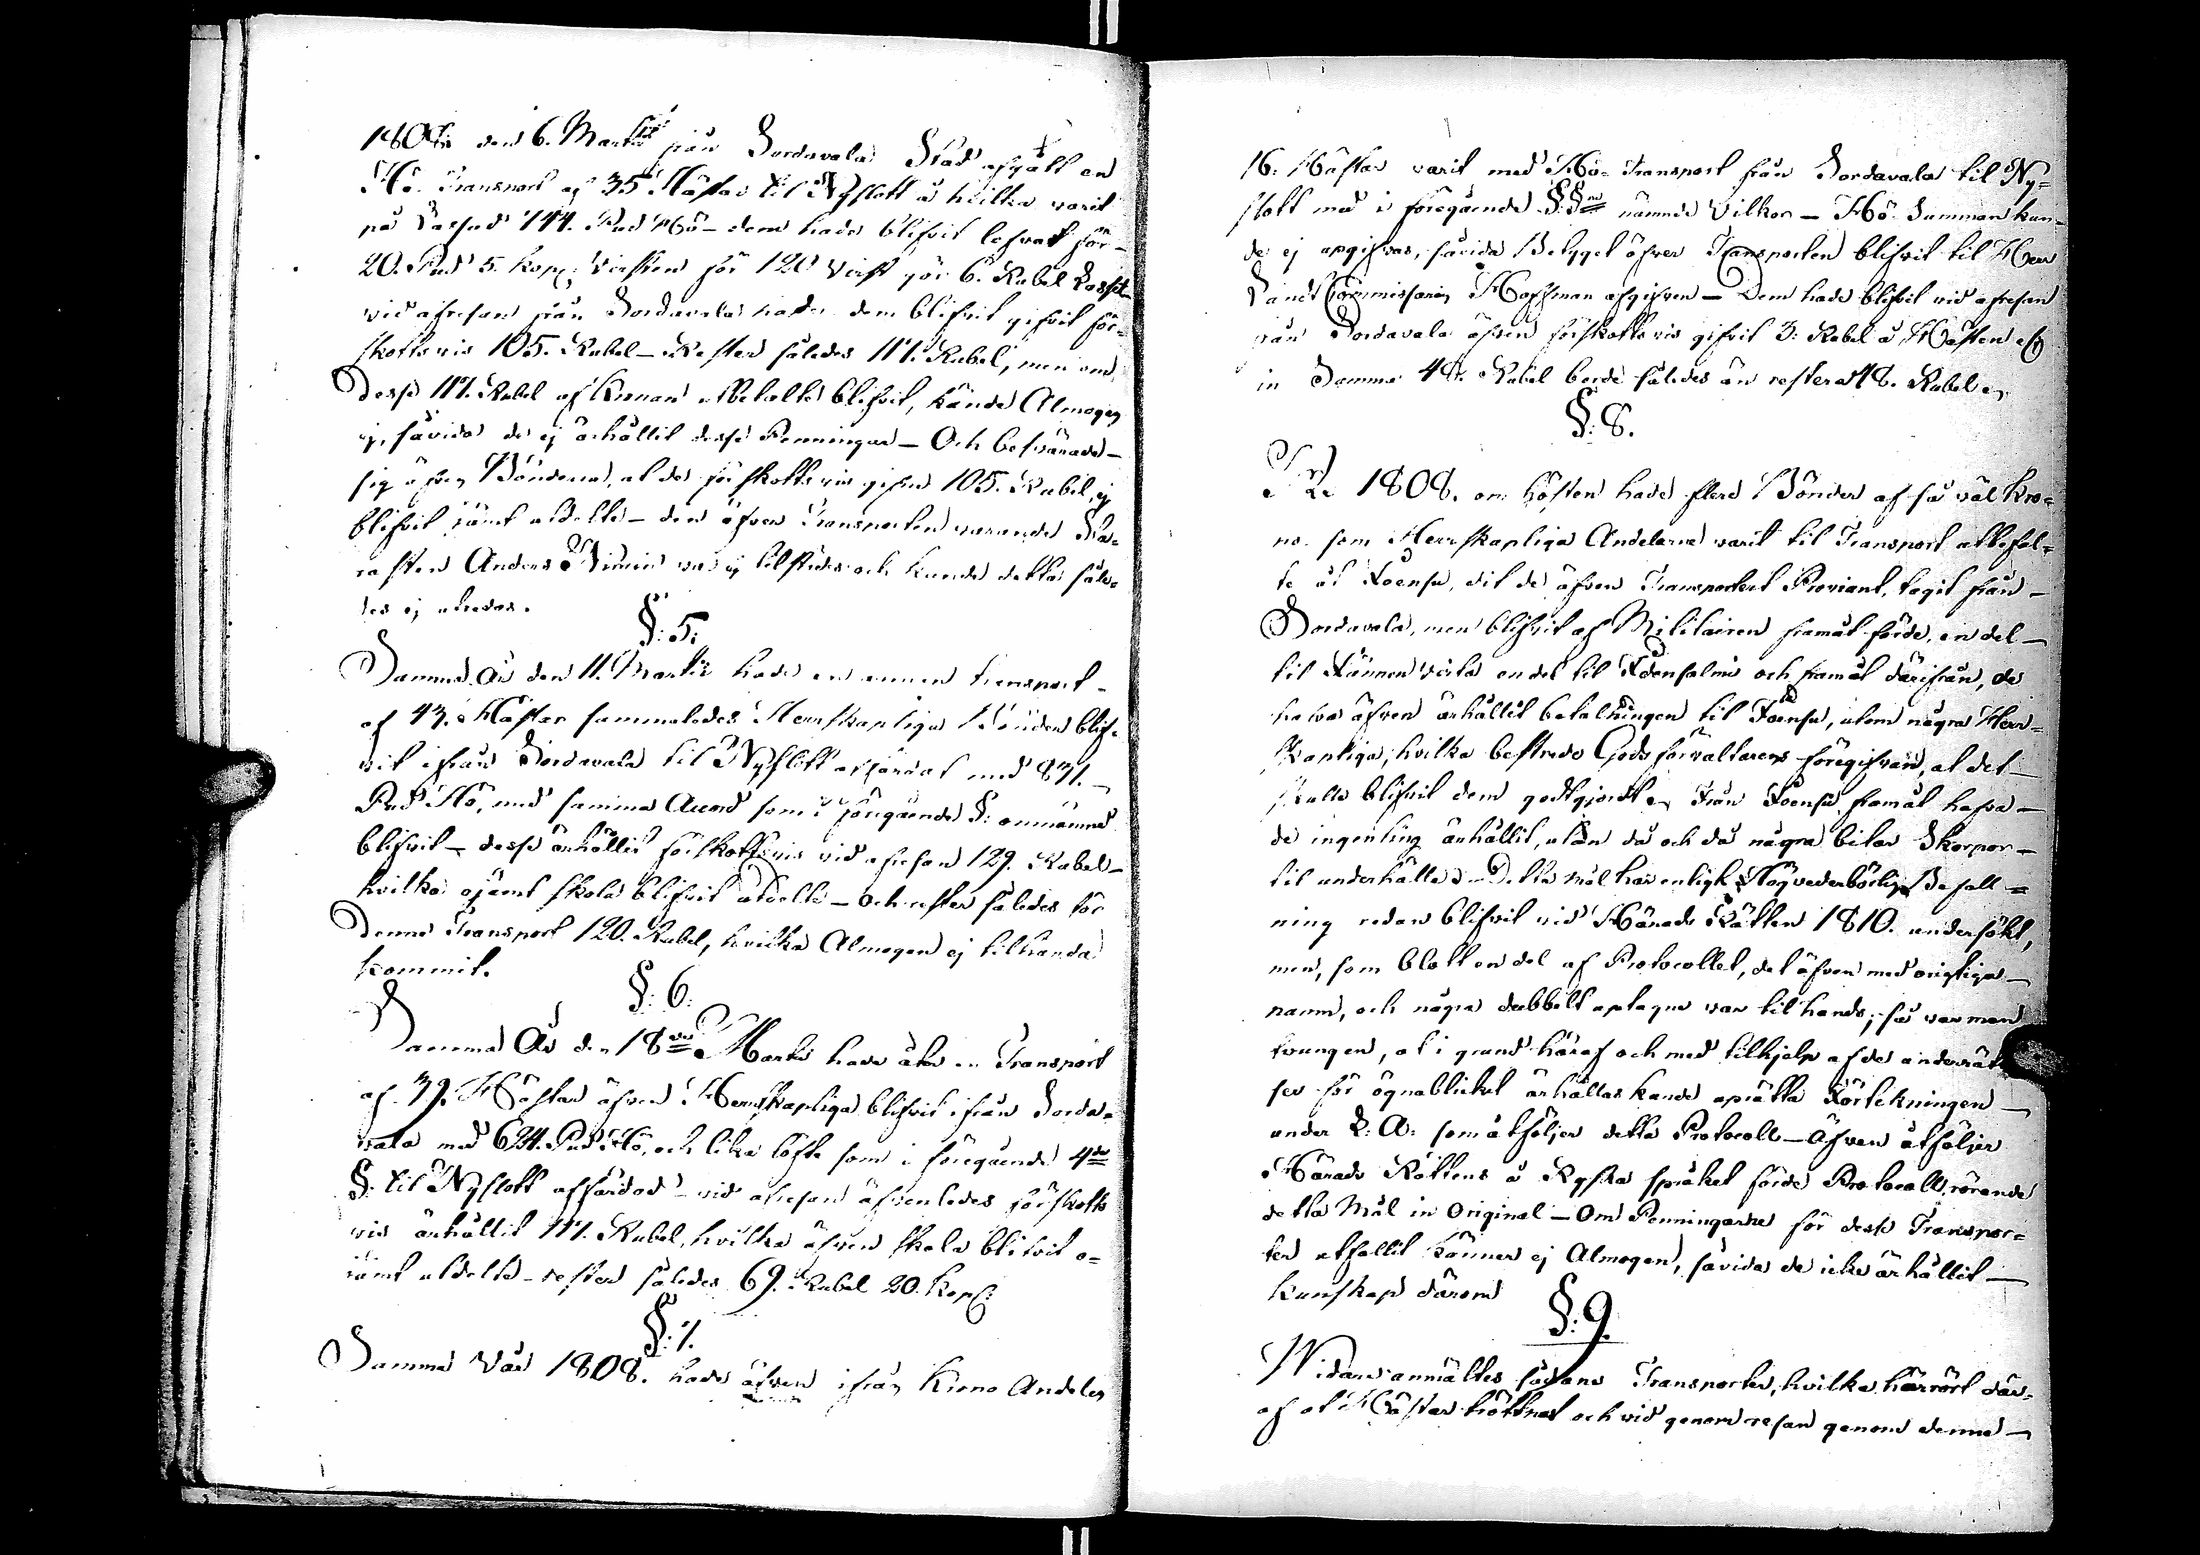 1808 den 6. Martii från Sordavala Stad afgått en
Hö-Transport af 35 Hästar til Nyslott å hvilka varit
på lassad 744. Pud Hö – dem hade blifvit lofvat för –
20. Pud 5. Kop: Versten för 120 Verst gör 6. Rubel Lasset
vid afresan från Sordavala hade dem blifvit gifvit för-
skottsvis 105. Rubel – Rester således 117. Rubel, men om
Desse 117. Rubel af Kronan utbetalte blifvit, kände Almogen
ej, såvida de ej ärhållit desse Penningar – Och besvärade –
sig äfven Bönderne, at de förskottsvis gifne 105. Rubel, ej
blifvit jämt utdelte – den öfver Transporten varande Sta-
rosten Anders var ej tilstädes och kunde detta såle-
des ej utredas.
§: 5.
Samma År den 11. Martii hade en annan transport –
af 43. Hästar sammaledes Herrskapliga Bönder blif-
vit ifrån Sordavala til Nyslott affärdat med 831. –
Pud Hö, med samma Accord som i föregående §: omnämnd
blifvit – desse ärhållit förskottsvis vid afresan 129. Rubel –
hvilka ojämt skola blifvit utdelte – Och rester således för
Denne Transport 120. Rubel, hvilka Almogen ej tilhanda
kommit.
§: 6.
Samma År den 18de Martii hade åter en Transport
af 39. Hästar äfven Herrskapliga blifvit ifrån Sorda-
vala med 624. Pud Hö, och lika löfte som i föregående 4de
§: til Nyslott affärdad – vid afresan äfvenledes förskotts
vis ärhållit 117. Rubel, hvilka äfven skola blifvit o-
jämt utdelte – rester således 69. Rubel 20. Kop:
§: 7.
Samma Vår 1808. hade äfven ifrån Krono Andelen
16. Hästar varit med Hö-Transport från Sordavala til Ny-
slott med i föregående §§ne nämnde Vilkor – Hö Summan kun-
de ej upgifvas, såvida Betyget öfver Transporten blifvit til Herr
Landt Commissarien Hoffman afgifven – Dem hade blifvit vid afresan
från Sordavala äfven förskottsvis gifvit 3: Rubel å Hästen
in Summa 48. Rubel borde således än restera 48. Rubel
§: 8.
År 1808. om hösten hade flere Bönder af så väl Kro-
no som Herrskapliga Andelarne varit til Transport utbefal-
te åt Joensu, dit de äfven Transportert Proviant, tagit från –
Sordavala, men blifvit af Militairen framåt förde, en del –
til en del til Idensalmi och framåt därifrån, de
hafva äfven ärhållit betalningen til Joensu, utom några Herr-
skapliga, hvilka bestrido Gods förvaltarens föregifvan, at det –
skulle blifvit dem godtgjordt från Joensu framåt hafva –
de ingenting ärhållit, utan då och då några bitar Skorpor –
til underhålle – Detta mål har enligt Högvederbörlig Befall-
ning redan blifvit vid Härads Rätten 1810. undersökt,
men, som blott en del af Protocollet, det äfven med origtiga –
namn, och några dubbelt uptagne var til hands, så var man
tvungen, at i grund häraf och med tilhjelp af de underrät
ser för ögnablicket ärhållas kunde uprätta Förtekningen –
under L: A: som åtföljer detta Protocoll – Äfven åtföljer
Härads Rättens å Ryska språket förde Protocoll, rörande
detta Mål in Original – Om Penningarne för desse Transpor-
ter utfallit känner ej Almogen, såvida de icke ärhållit –
kunskap därom
§: 9.
Widare anmältes sådane Transporter, hvilka härrört där-
af at Hästar tröttnat och vid genom resan genom denne –